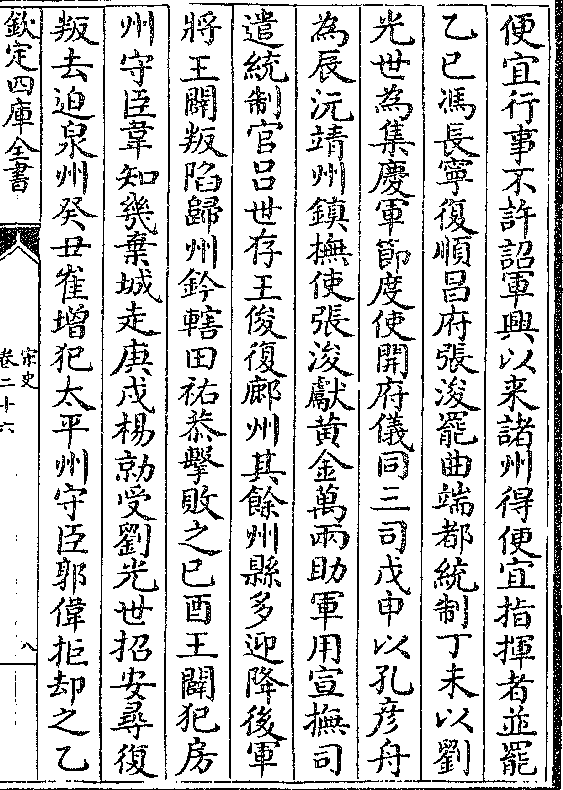 便宜行事不許詔軍興以来諸州得便宜指揮者並罷
乙巳馮長寧復順昌府張浚罷曲端都統制丁未以劉
光世為集慶軍節度使開府儀同三司戊申以孔彦舟
為辰沅靖州鎮撫使張浚獻黄金萬兩助軍用宣撫司
遣統制官吕世存王俊復鄜州其餘州縣多迎降後軍
將王闢叛陷歸州鈐轄田祐恭擊敗之已酉王闢犯房
州守臣韋知幾棄城走庚戌楊勍受劉光世招安尋復
叛去迫泉州癸丑崔増犯太平州守臣郭偉拒却之乙
欽定四庫全書
宋史
卷二十六
八